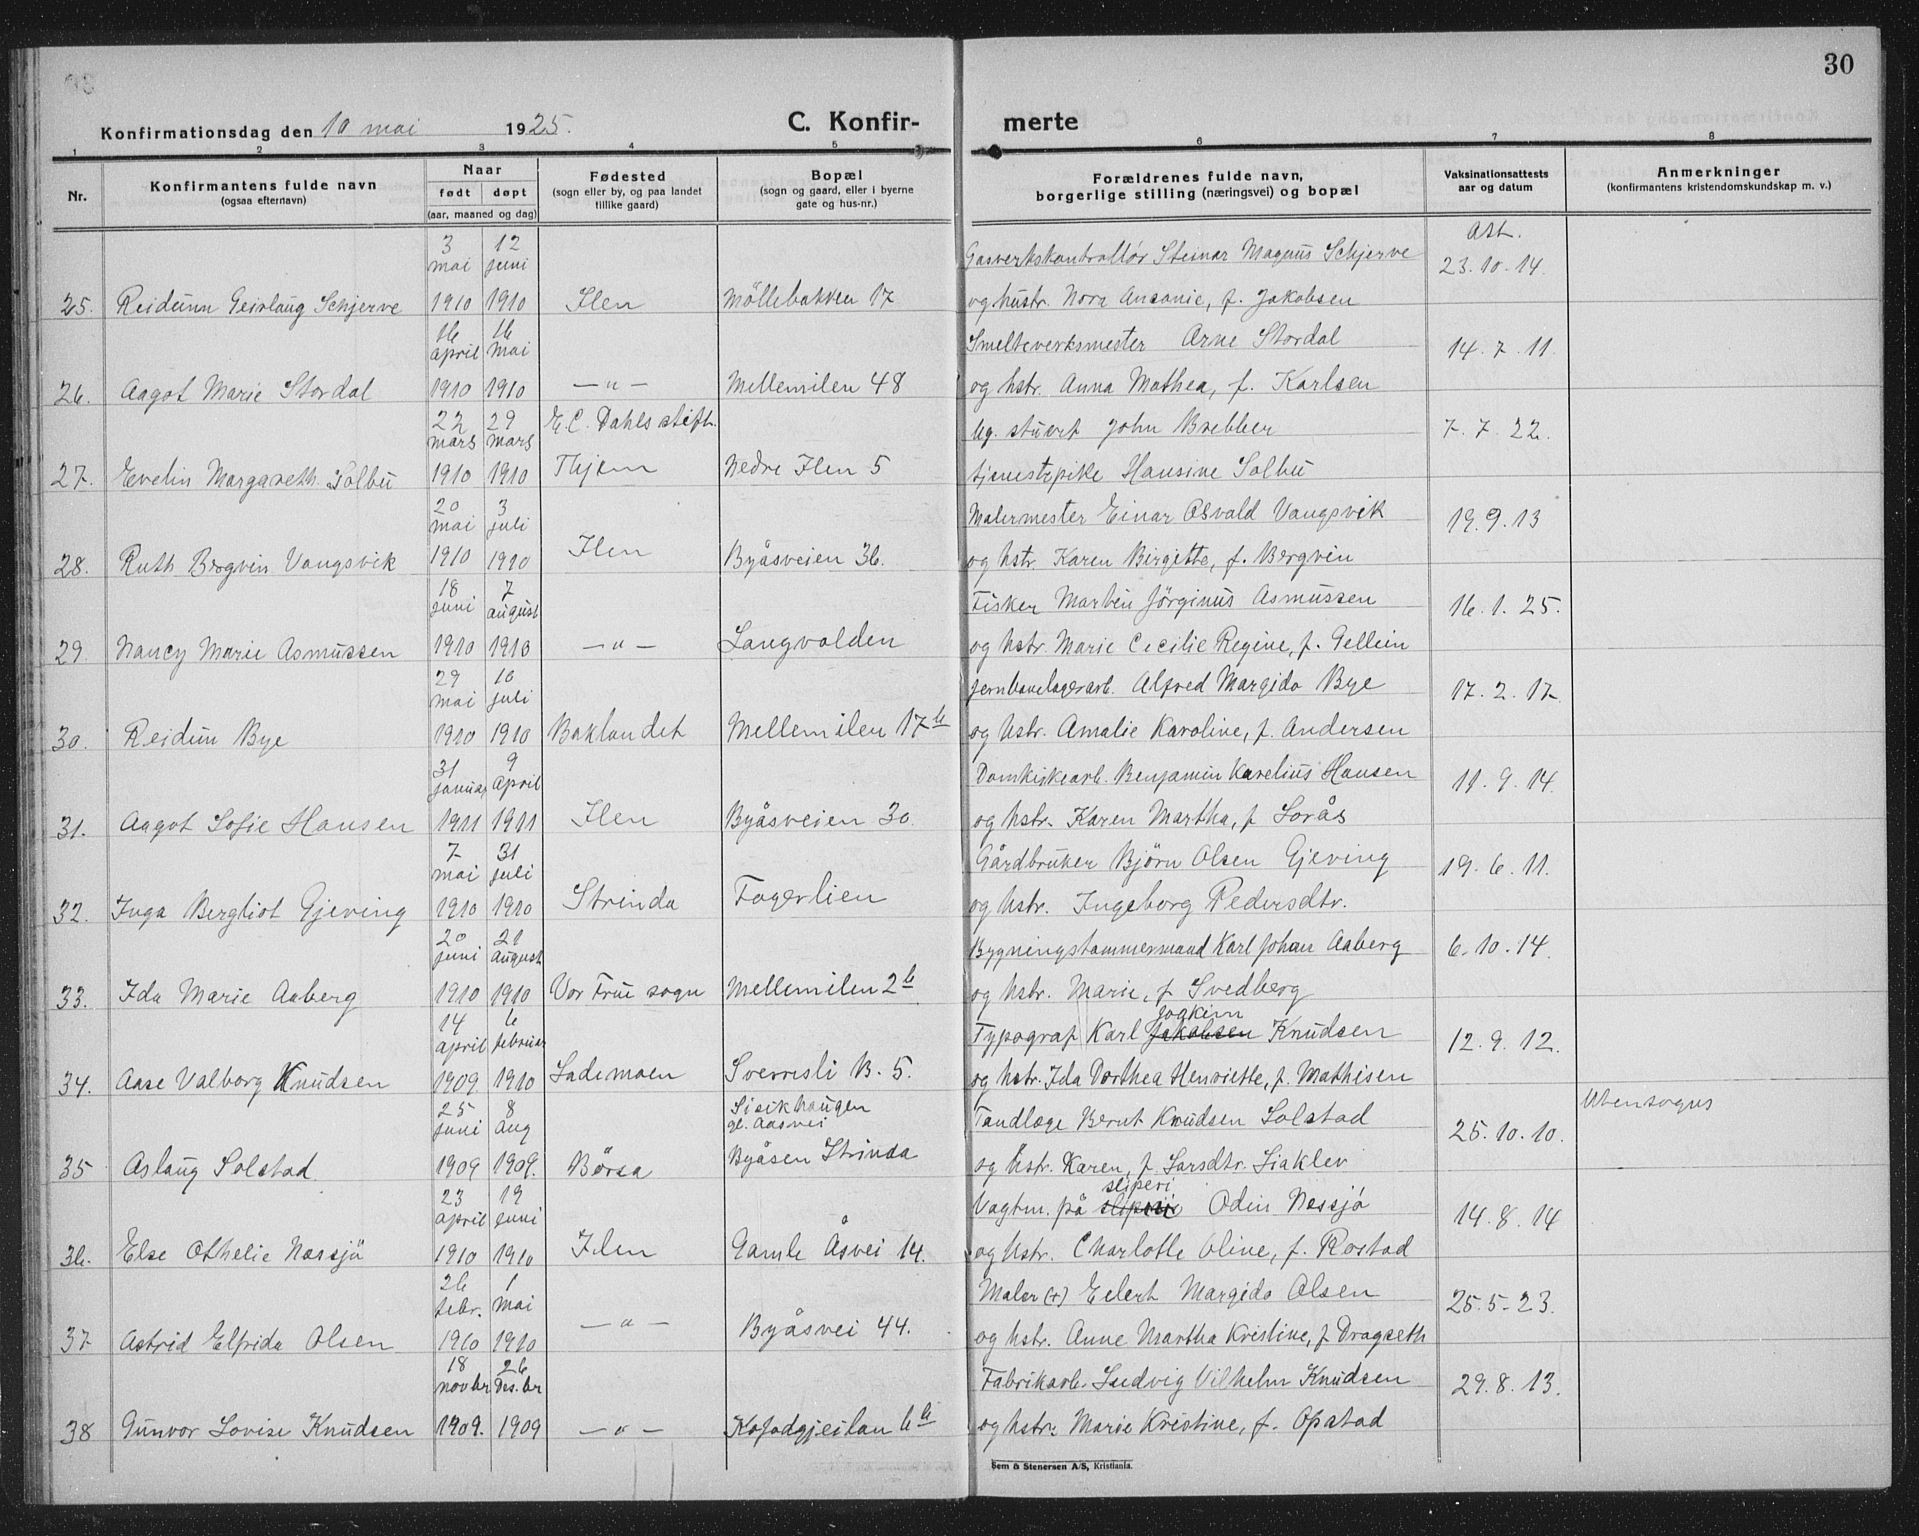 30
Konfirmationsdag den 10 mai 1925.
C. Konfir-
merte
1 2 3 4 5 6 7 8
Nr.
Konfirmantens fulde navn
(ogsaa efternavn)
Naar
født døpt
(aar, maaned og dag)
Fødested
(sogn eller by, og paa landet
tillike gaard)
Bopæl
(sogn og gaard, eller i byerne
gate og hus-nr.)
Forældrenes fulde navn,
borgerlige stilling (næringsvei) og bopæl
Vaksinationsattests
aar og datum
Anmerkninger
(konfirmantens kristendomskundskap m. v.)
3 12 Att.
mai juni Gasverkskontrollør Steinar Magnus Schjerve 23.10.14.
25. Reidunn Geirlaug Schjerve 1910 1910 Ilen Möllebakken 17 og hustr. Nora Ansonie, f. Jakobsen
16 16
april mai Smelteverksmester Arne Stordal 14.7.11.
26. Aagot Marie Stordal 1910 1910 —"— Mellemilen 48 og hstr. Anna Mathea, f. Karlsen
22 29 E.C. Dahls stift.
mars mars Ug. stuert John Brebber 7.7.22.
27. Evelin Margareth Solbu 1910 1910 Thjem Nedre Ilen 5 tjenestepike Hansine Solbu
20 3
mai juli Malermester Einar Osvald Vangsvik 19.9.13
28. Ruth Bergvin Vangsvik 1910 1910 Ilen Byåsveien 36. og hstr. Karen Birgitte, f. Bergvin
18 7
juni august Fisker Martin Jörginus Asmussen 16.1.25.
29. Nancy Marie Asmussen 1910 1910 —"— Langvolden og hstr. Marie Cecilie Regine, f. Gellein
29 10
mai juli Jernbanelagerarb. Alfred Margido Bye 17.2.17.
30. Reidun Bye 1910 1910 Baklandet Mellemilen 17b og hstr. Amalie Karoline, f. Andersen
31 9
januar april Domkirkearb. Benjamin Karelius Hansen 11.9.14.
31. Aagot Sofie Hansen 1911 1911 Ilen Byåsveien 30. og hstr. Karen Martha, f. Sorås
7 31
mai juli Gårdbruker Björn Olsen Gjeving 19.6.11.
32. Inga Bergliot Gjeving 1910 1910 Strinda Fagerlien og hstr. Ingeborg Pedersdtr.
20 21
juni august Bygningstømmermand Karl Johan Aaberg 6.10.14.
33. Ida Marie Aaberg 1910 1910 Vor Frue sogn Mellemilen 2b og hstr. Marie, f. Svedberg
14 6 Joakim
april februar Typograf Karl Jakobsen Knudsen 12.9.12.
34. Aase Valborg Knudsen 1909 1910 Lademoen Sverresli B. 5. og hstr. Ida Dorthea Henriette, f. Mathisen
25 8 Sisikhaugen Utensogns
juni aug gl. Aasvei Tandlæge Bernt Knudsen Solstad 25.10.10.
35 Aslaug Solstad 1909 1909. Börsa Byåsen Strinda og hstr. Karen, f. Larsdtr. Liaklev
23 19 sliperi
april juni Vagtm. på Odin Nessjö 14.8.14
36. Else Othelie Nessjö 1910 1910 Ilen Gamle Åsvei 14. og hstr. Charlotte Oline, f. Rostad
26 1
febr. mai Maler (+) Eilert Margido Olsen 25.5.23.
37. Astrid Elfrida Olsen 1910 1910 —"— Byåsvei 44. og hstr. Anne Martha Kristine, f. Dragseth
18 26
novbr Des.br Fabrikarb. Ludvig Vilhelm Knudsen 29.8.13.
38 Gunvor Lovise Knudsen 1909. 1909 —"— Kofodgjeilan 6b og hstr. Marie Kristine, f. Opstad
Sem & Stenersen A/S, Kristiania.